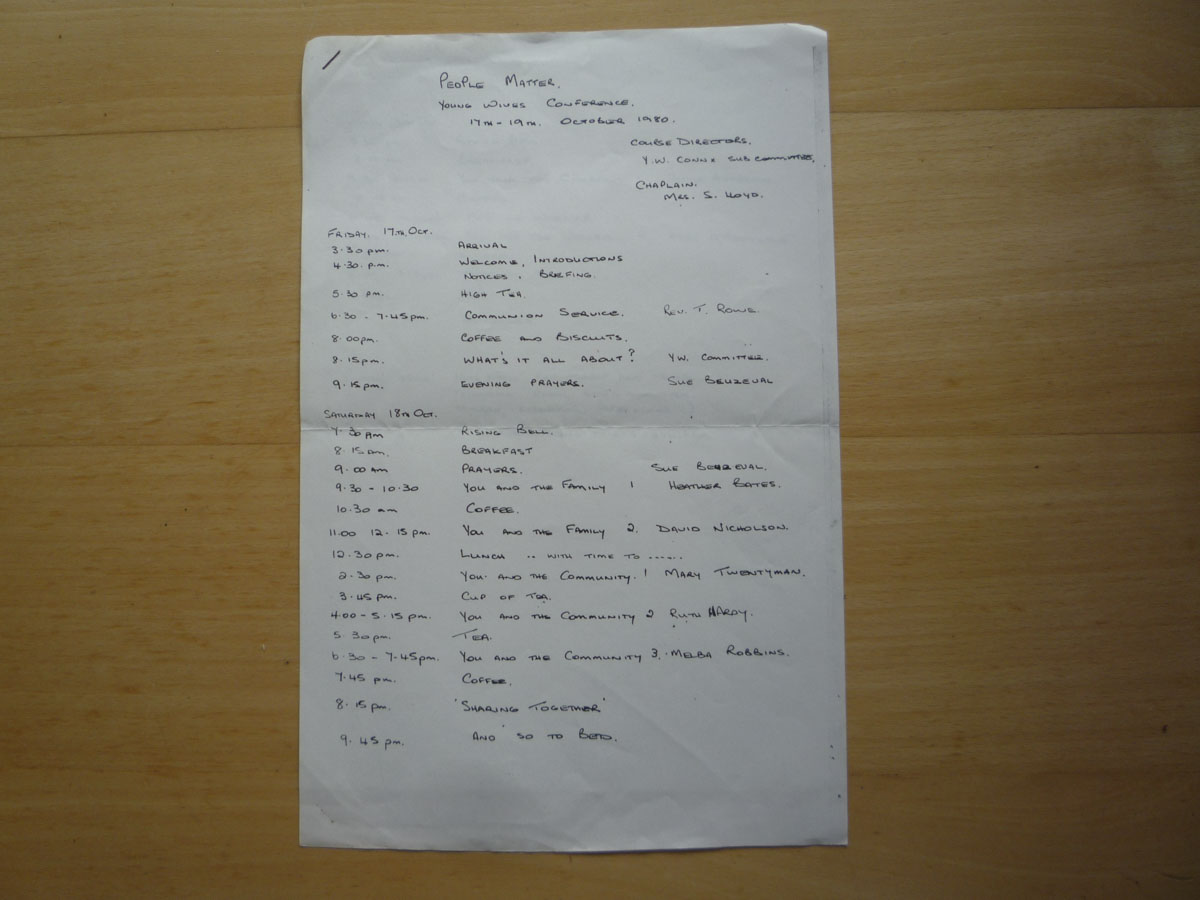 PEOPLE MATTER.
YOUNG WIVES CONFERENCE.
17TH - 19TH. OCTOBER 1980.
COURSE DIRECTORS.
Y.W. CONNX SUB COMMITTEE,
CHAPLAIN.
MRS. S. LLOYD.
FRIDAY. 17TH. OCT.
3.30 pm. ARRIVAL
4.30. p.m. WELCOME, INTRODUCTIONS
NOTICES, BRIEFING.
5.30 pm. HIGH TEA.
6.30 - 7.45pm. COMMUNION SERVICE. REV. T. ROWE
8.00pm. COFFEE AND BISCUITS.
8.15pm. WHAT'S IT ALL ABOUT? Y.W. COMMITTEE.
9.15pm. EVENING PRAYERS. SUE BEUZEVAL
SATURDAY 18TH OCT.
7.30 Am RISING BELL.
8.15am. BREAKFAST
9.00 am PRAYERS. SUE BEUZEVAL.
9.30 - 10.30 YOU AND THE FAMILY 1 HEATHER BATES.
10.30 am COFFEE.
11.00 12.15 pm. YOU AND THE FAMILY 2. DAVID NICHOLSON.
12.30pm. LUNCH .. WITH TIME TO ......
2.30 pm. YOU. AND THE COMMUNITY. 1 MARY TWENTYMAN.
3.45 pm. CUP OF TEA.
4.00 - 5.15 pm. YOU AND THE COMMUNITY 2 RUTH HARDY.
5.30pm TEA.
6.30 - 7.45pm. YOU AND THE COMMUNITY 3. MELBA ROBBINS.
7.45 pm. COFFEE.
8.15 pm. 'SHARING TOGETHER'
9.45 pm. AND SO TO BED.